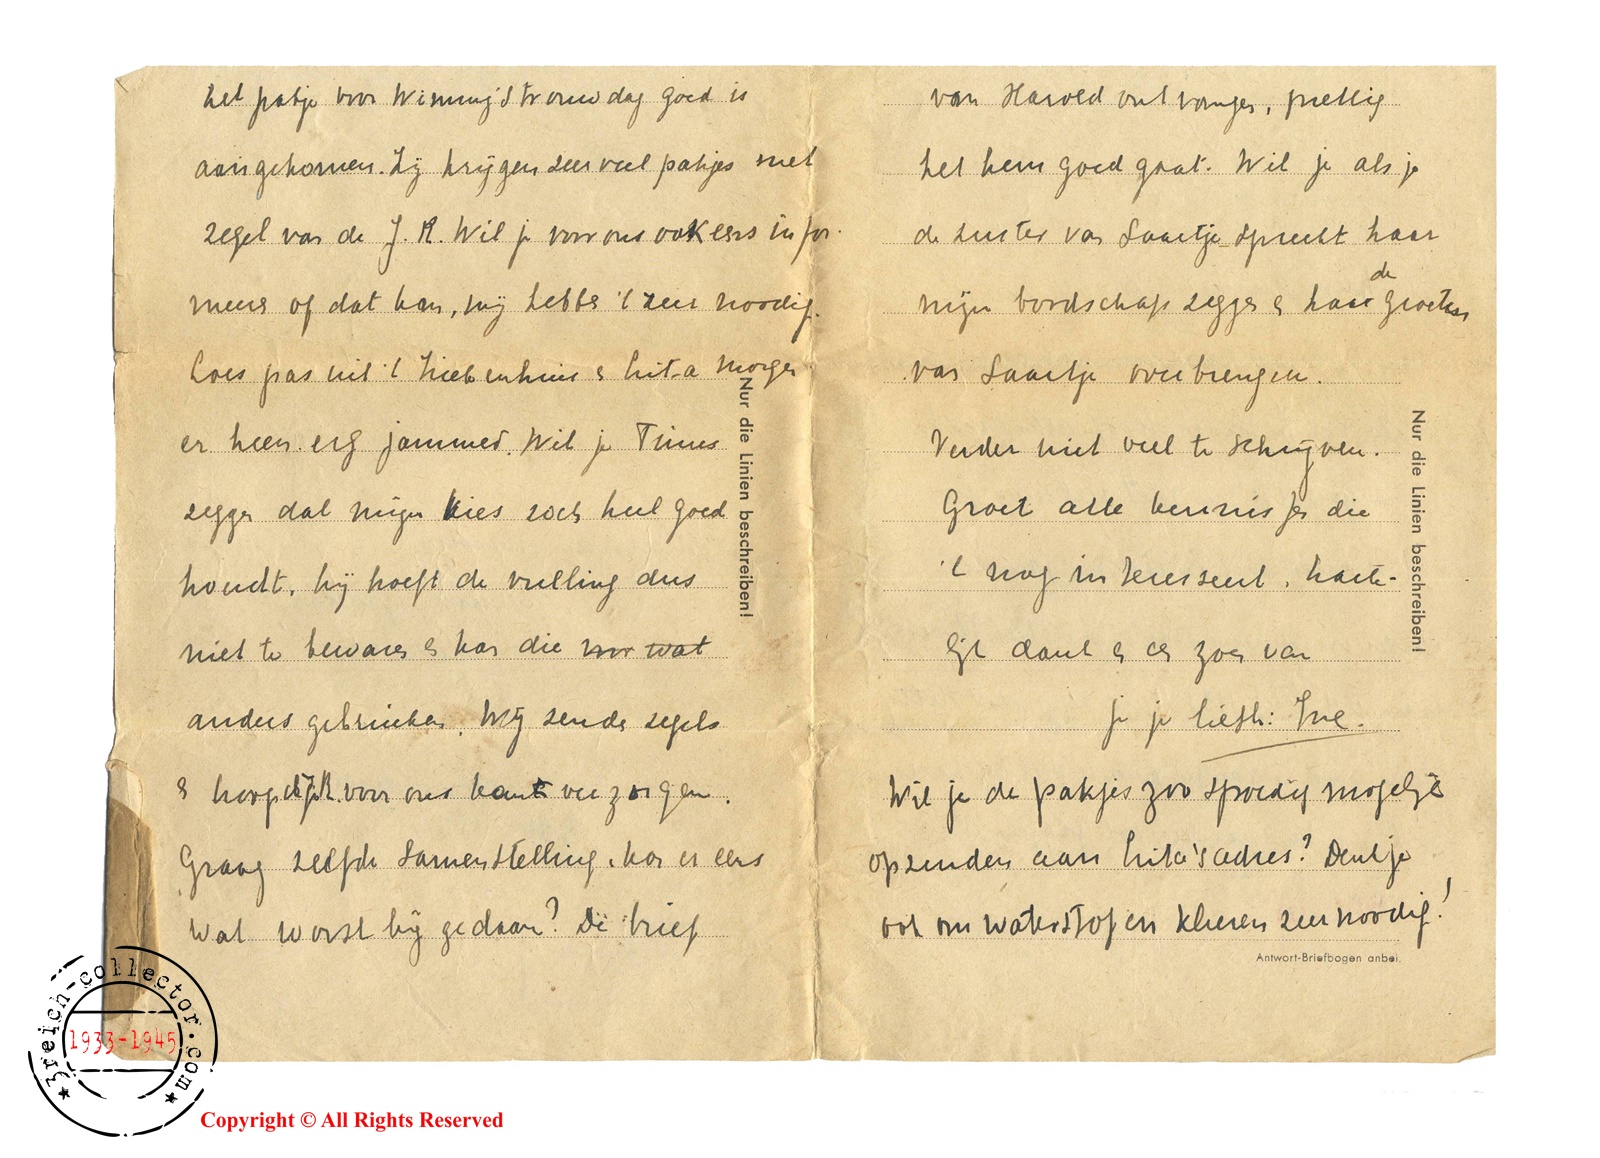 het pakje voor Wimmy's trouwdag goed is
aangekomen. Zij krijgen zeer veel pakjes met
zegel van de J. R. Wil je voor ons ook eens infor-
meere of dat kan, wij hebbe 't zeer noodig.
Loes pas uit 't Ziekenhuis & Lita morge
er heen. erg jammer. Wil je Tinus
zegge dat mijn kies zich heel goed
houdt, hij hoeft de vulling dus
niet te beware & kan die voor wat
anders gebruiken. Wij zende zegels
& hoop J.R. voor ons kant verzorgen.
Graag zelfde samenstelling. kan er eens
wat worst bij gedaan? De brief
van Harold ontvange, prettig
het hem goed gaat. Wil je als je
de zuster van Saartje spreekt haar
de
mijn boodschap zegge & haar groeten
van Saartje overbrengen.
Verder niet veel te schrijven.
Groet alle kennisjes die
't nog interesseert, harte-
lijk dank & een zoen van
je je liefh: Ine.
Wil je de pakjes zoo spoedig mogelijk
opzenden aan Lita's adres? Denk je
ook om waterstof en kleren zeer noodig!
Nur die Linien beschreiben!
Nur die Linien beschreiben!
Antwort-Briefbogen anbei.
3reich-collector.com
1933-1945
Copyright © All Rights Reserved